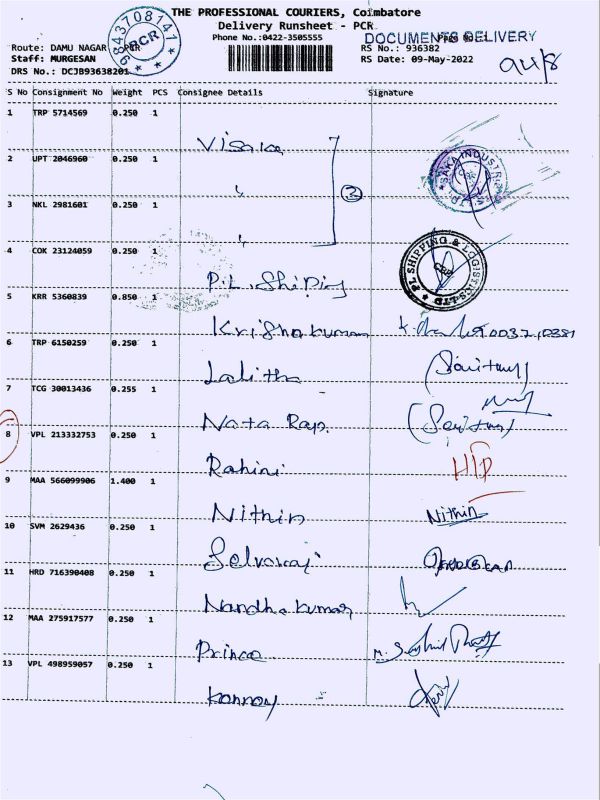 THE PROFESSIONAL COURIERS, Coimbatore
Delivery Runsheet - PCR
Phone No.:0422-3505555
DOCUMENTS DELIVERY
Route: DAMU NAGAR - PCR
RS No.: 936382
Staff: MURGESAN
RS Date: 09-May-2022
DRS No.: DCJB93638201
9843708141
PCR
94/8
S No Consignment No Weight PCS Consignee Details Signature
1 TRP 5714569 0.250 1
Visaka
2 UPT 2046960 0.250 1
"
②
3 NKL 2981601 0.250 1
"
4 COK 23124059 0.250 1
P.L. Shiping
PL SHIPPING & LOGISTICS LTD
5 KRR 5360839 0.850 1
Krishnakumar
6 TRP 6150259 0.250 1
Lalitha
7 TCG 30013436 0.255 1
Nata Raj.
8 VPL 213332753 0.250 1
Rahini
9 MAA 566099906 1.400 1
Nithin Nithin
10 SVM 2629436 0.250 1
Selvaraj
11 HRD 716390408 0.250 1
Nandhakumar
12 MAA 275917577 0.250 1
Prince
13 VPL 498959057 0.250 1